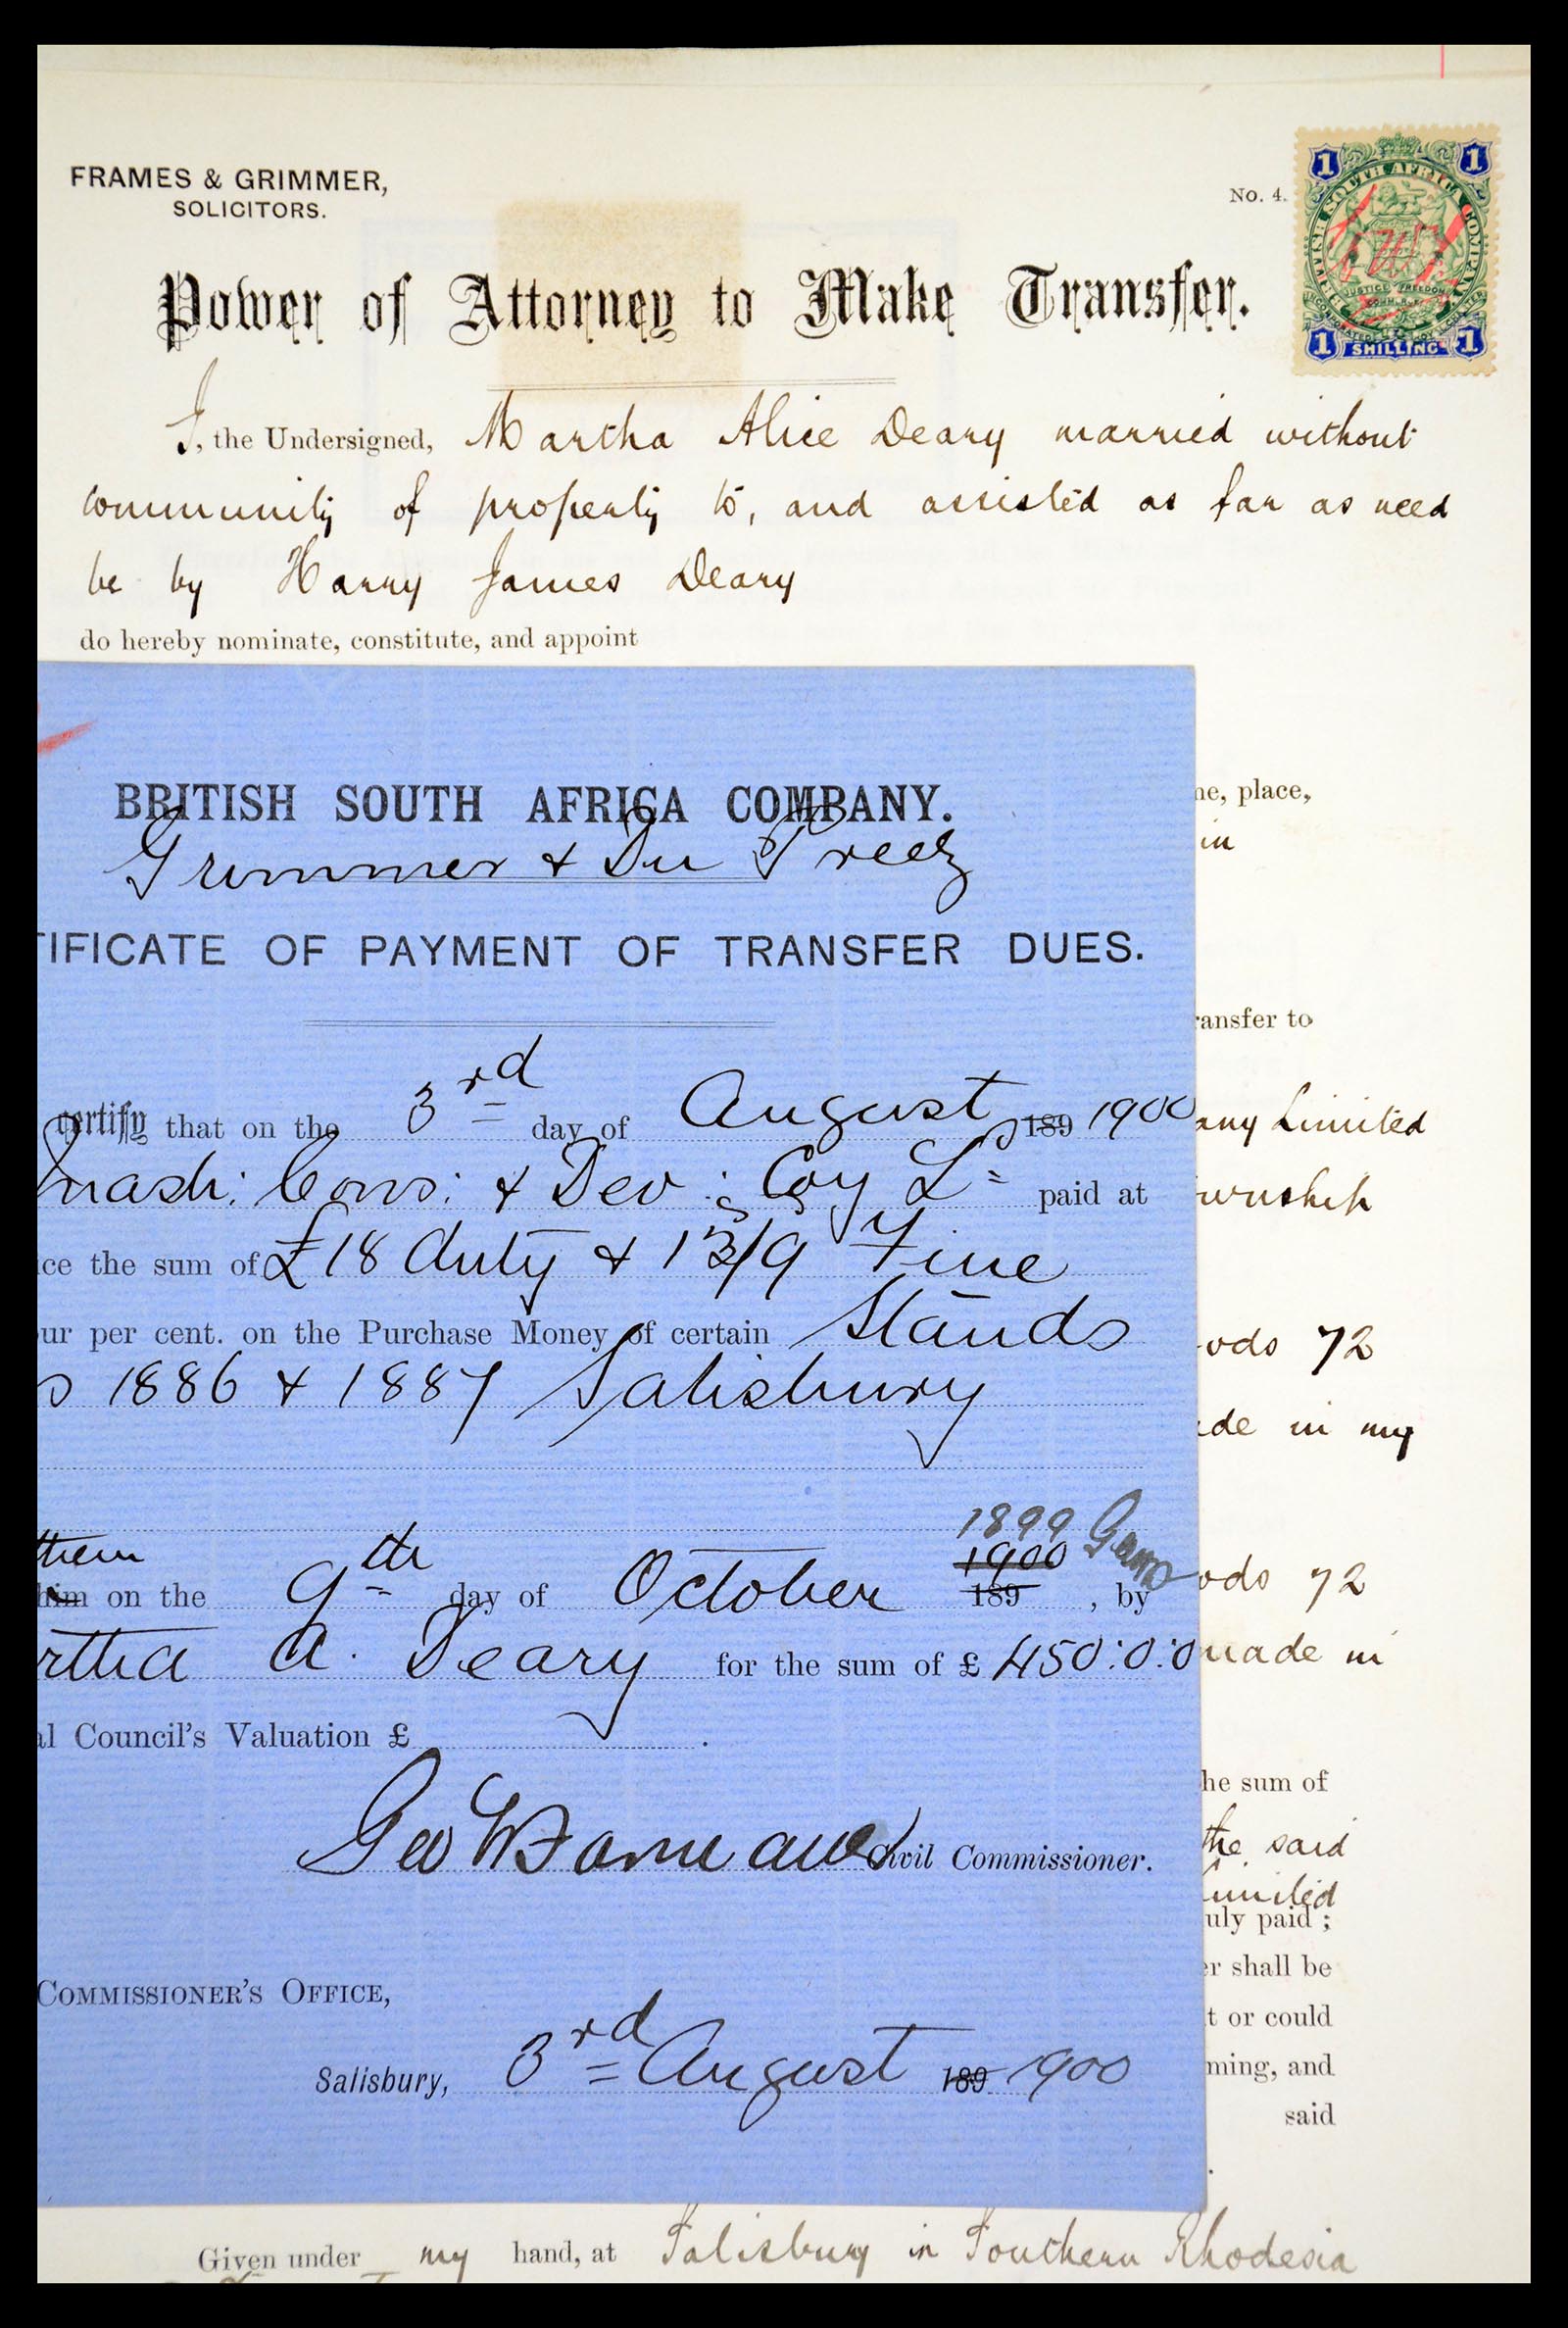 FRAMES & GRIMMER,
SOLICITORS.
No. 4.
1 1
BRITISH SOUTH AFRICA COMPANY
JUSTICE FREEDOM
COMMERCE
1 SHILLING 1
Power of Attorney to Make Transfer.
I, the Undersigned, Martha Alice Deary married without
community of property to, and assisted as far as need
be by Harry James Deary
do hereby nominate, constitute, and appoint
ne, place,
in
ransfer to
any Limited
wnship
ods 72
de in my
ods 72
made in
he sum of
the said
imited
uly paid ;
er shall be
t or could
ming, and
said
BRITISH SOUTH AFRICA COMPANY.
Grimmer & Du Preez
TIFICATE OF PAYMENT OF TRANSFER DUES.
certify that on the 3rd day of August 189 1900
mash: Cons: & Dev: Coy Ld paid at
ce the sum of £18 duty & 13/9 Fine
ur per cent. on the Purchase Money of certain Stands
s 1886 & 1887 Salisbury
1899
them 1900
him on the 9th day of October 189 , by
rtha A. Deary for the sum of £ 450:0:0
al Council's Valuation £ .
Civil Commissioner.
COMMISSIONER'S OFFICE,
Salisbury, 3rd August 189 1900
Given under my hand, at Salisbury in Southern Rhodesia